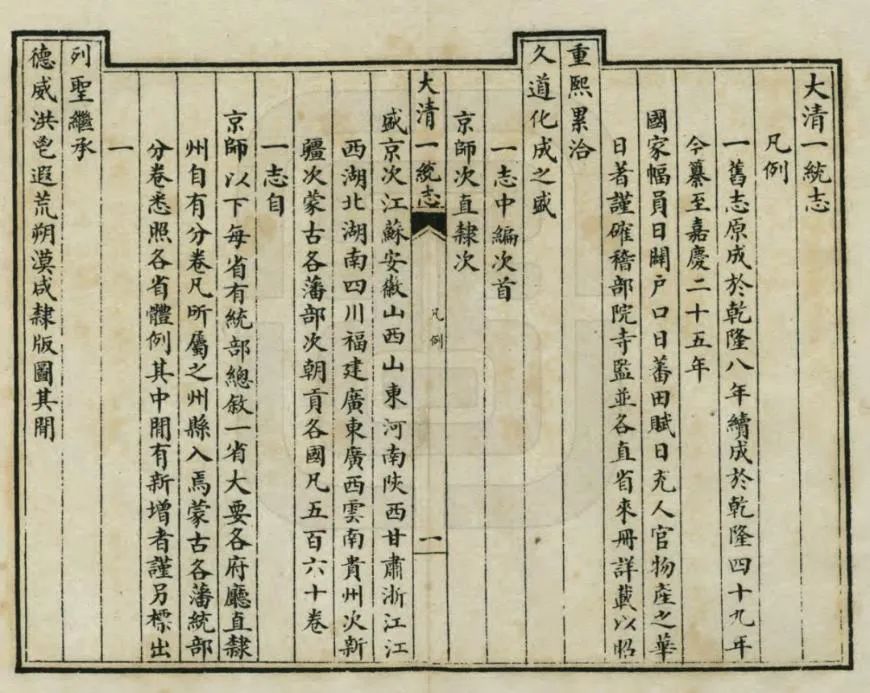 大清一統志
凡例
一舊志原成於乾隆八年續成於乾隆四十九年
今纂至嘉慶二十五年
國家幅員日闢戶口日蕃田賦日充人官物產之華
日著謹確稽部院寺監並各直省來冊詳載以昭
重熙累洽
久道化成之盛
一志中編次首
京師次直隸次
大清一統志 凡例 一
盛京次江蘇安徽山西山東河南陝西甘肅浙江江
西湖北湖南四川福建廣東廣西雲南貴州次新
疆次蒙古各藩部次朝貢各國凡五百六十卷
一志自
京師以下每省有統部總敘一省大要各府廳直隸
州自有分卷凡所屬之州縣入焉蒙古各藩統部
分卷悉照各省體例其中閒有新增者謹另標出
一
列聖繼承
德威洪鬯遐荒朔漠咸隸版圖其閒